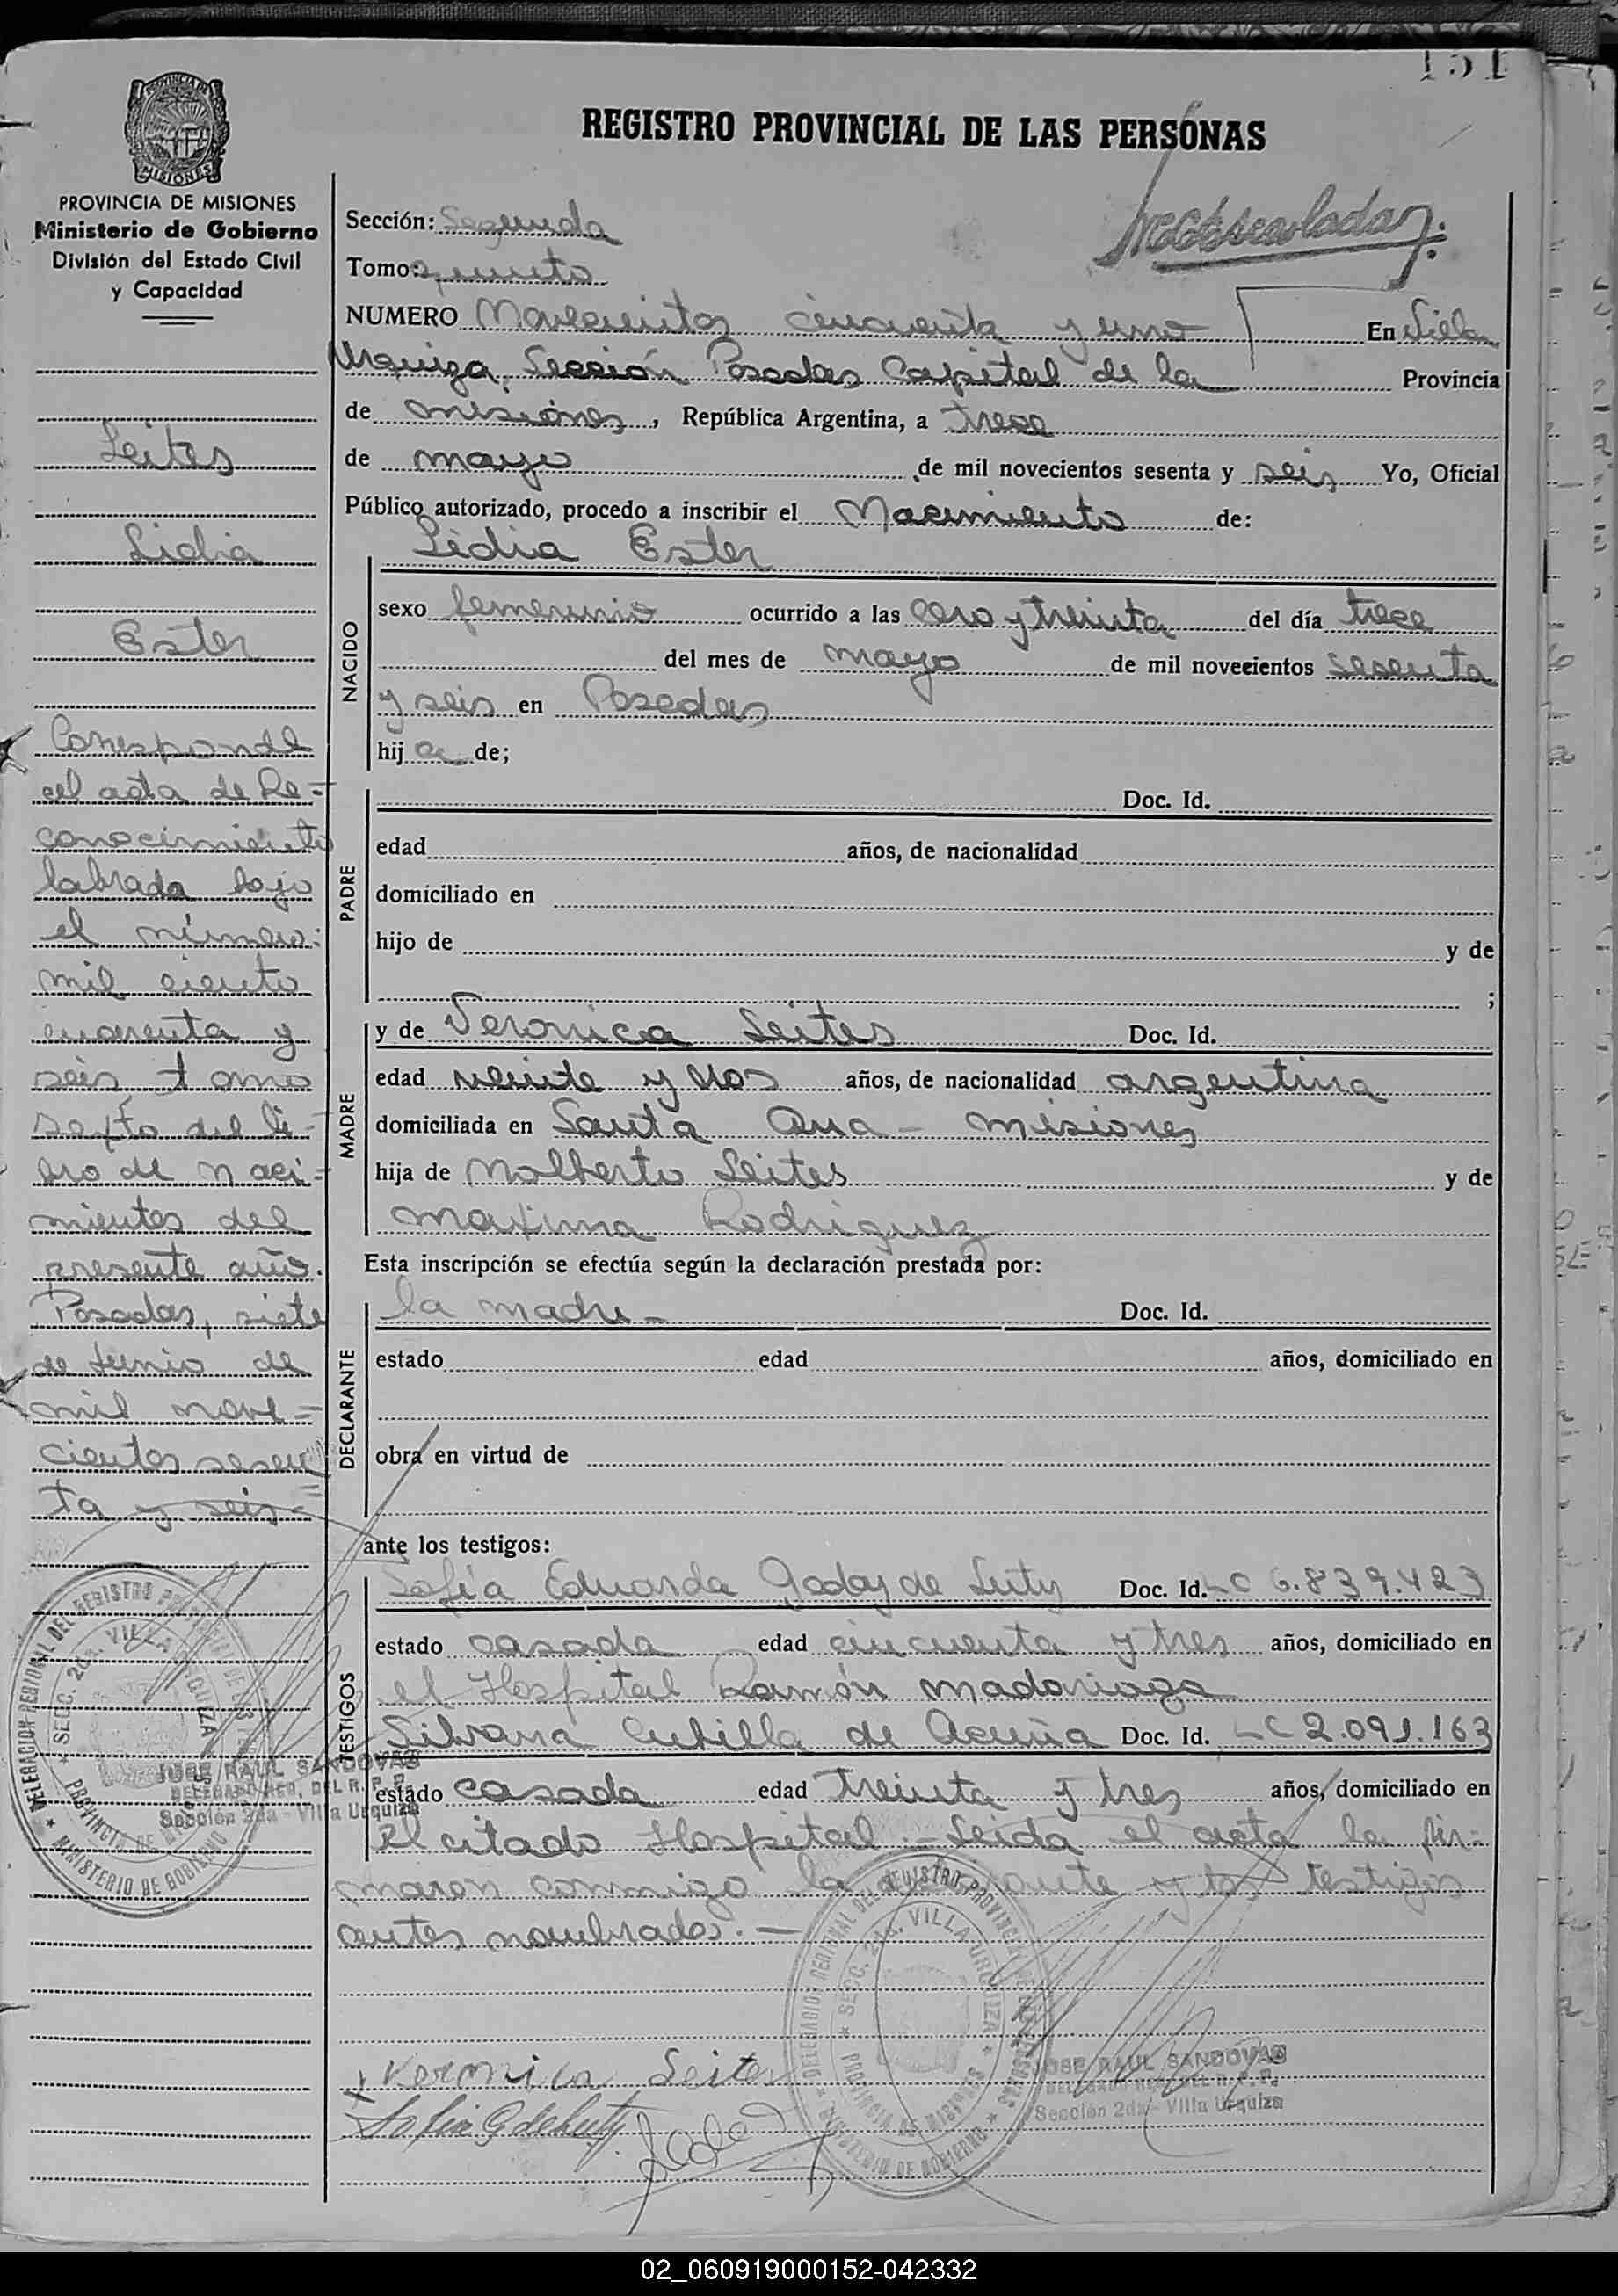 151
REGISTRO PROVINCIAL DE LAS PERSONAS
PROVINCIA DE MISIONES
Ministerio de Gobierno
División del Estado Civil
y Capacidad
Leites
Lidia
Ester
Corresponde
el acta de Re-
conocimiento
labrada bajo
el número:
mil ciento
cuarenta y
seis tomo
sexto del li-
bro de naci-
mientos del
presente año.
Posadas, siete
de Junio de
mil nove-
cientos sesen
ta y seis
Sección: Segunda
Tomo: quinto
NUMERO Novecientos cincuenta y uno En Villa
Urquiza, Sección Posadas Capital de la Provincia
de misiones, República Argentina, a trece
de mayo de mil novecientos sesenta y seis Yo, Oficial
Público autorizado, procedo a inscribir el Nacimiento de:
Lidia Ester
NACIDO
sexo femenino ocurrido a las cero y treinta del día trece
del mes de mayo de mil novecientos sesenta
y seis en Posadas
hij a de;
PADRE
Doc. Id.
edad años, de nacionalidad
domiciliado en
hijo de y de
;
MADRE
y de Veronica Leites Doc. Id.
edad veinte y dos años, de nacionalidad argentina
domiciliada en Santa Ana - misiones
hija de Nolberto Leites y de
maxima Rodriguez
Esta inscripción se efectúa según la declaración prestada por:
DECLARANTE
la madre - Doc. Id.
estado edad años, domiciliado en
obra en virtud de
ante los testigos:
TESTIGOS
Sofía Eduarda Godoy de Luty Doc. Id. LC 6.839.423
estado casada edad cincuenta y tres años, domiciliado en
el Hospital Ramón madariaga
Silvana Cubilla de Acuña Doc. Id. LC 2.091.163
estado casada edad treinta y tres años, domiciliado en
el citado Hospital.- Leida el acta la fir-
maron conmigo la y los testigos
antes nombrados.-
DELEGACION REGIONAL DEL REGISTRO PROVINCIAL DE LAS PERSONAS
SECC. 2da. VILLA URQUIZA
PROVINCIA DE MISIONES
MINISTERIO DE GOBIERNO
JOSE RAUL SANDOVAL
DELEGADO REG. DEL R. P. P.
Sección 2da - Villa Urquiza
DELEGACION REGIONAL DEL REGISTRO PROVINCIAL DE LAS PERSONAS
SECC. 2da. VILLA URQUIZA
PROVINCIA DE MISIONES
MINISTERIO DE GOBIERNO
JOSE RAUL SANDOVAL
DELEGADO REG. DEL R. P. P.
Sección 2da - Villa Urquiza
x Veronica Leites
Sofia G de Luty
02_060919000152-042332